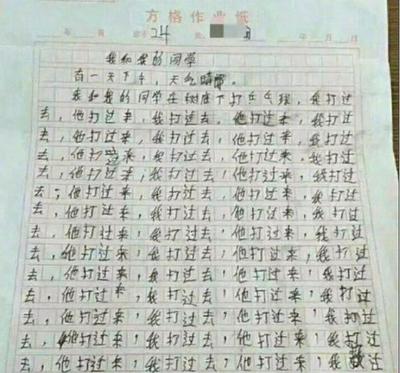 方格作业纸
24
我和我的同学
有一天下午，天气晴朗。
我和我的同学在树底下打乒乓球，我打过
去，他打过来，我打过去，他打过来，我打过
去，他打过来，我打过去，他打过来，我打过
去，他打过来，我打过去，他打过来，我打过
去，他打过来，我打过去，他打过来，我打过
去，他打过来，我打过去，他打过来，我打过
去，他打过来，我打过去，他打过来，我打过
去，他打过来，我打过去，他打过来，我打过
去，他打过来，我打过去，他打过来，我打过
去，他打过来，我打过去，他打过来，我打过
去，他打过来，我打过去，他打过来，我打过
去，他打过来，我打过去，他打过来，我打过
去，他打过来，我打过去，他打过来，我打过
去，他打过来，我打过去，他打过来，我